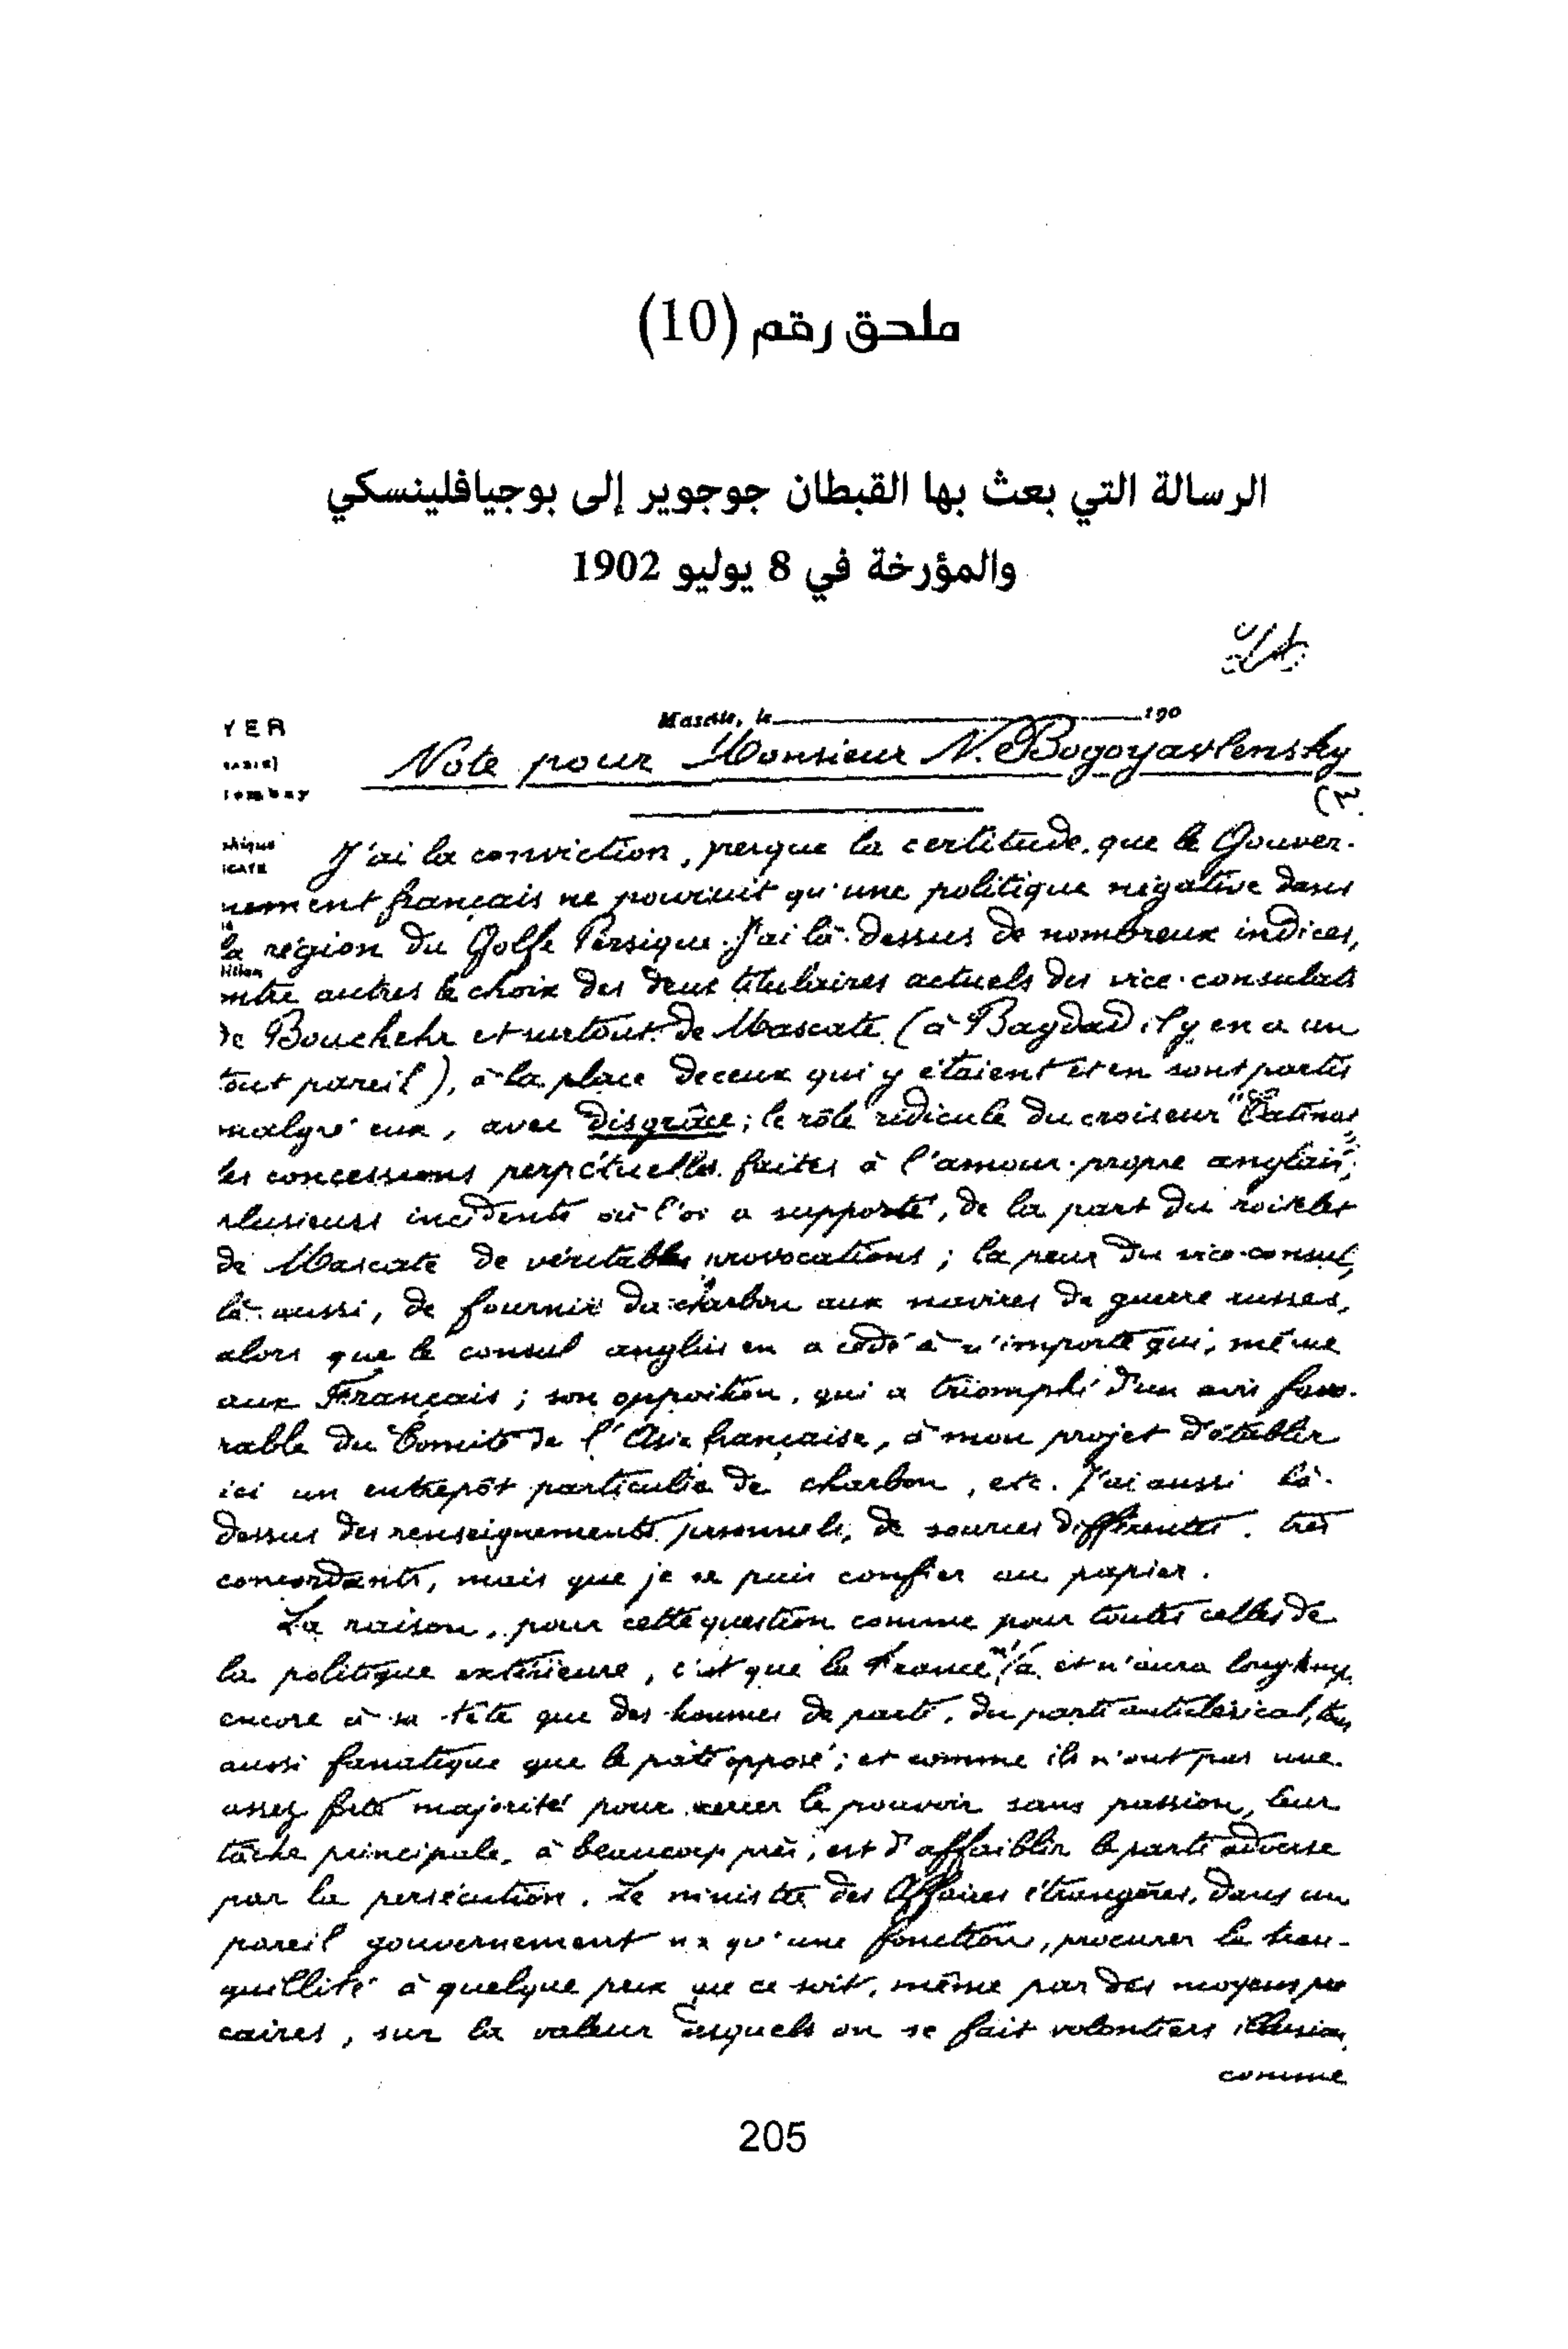 ملحق رقم (10)
الرسالة التي بعث بها القبطان جوجوير إلى بوجيافلينسكي
والمؤرخة في 8 يوليو 1902
YER
Mascate, le 190
Note pour Monsieur N. Bogoyavlensky
J'ai la conviction, presque la certitude, que le Gouver-
nement français ne poursuit qu'une politique négative dans
la région du Golfe Persique. J'ai là-dessus de nombreux indices,
entre autres le choix des deux titulaires actuels des vice-consulats
de Bouchehr et surtout de Mascate (à Bagdad il y en a un
tout pareil), à la place de ceux qui y étaient et en sont partis
malgré eux, avec disgrâce; le rôle ridicule du croiseur "Catinat"
les concessions perpétuelles faites à l'amour-propre anglais;
plusieurs incidents où l'on a supporté, de la part du roitelet
de Mascate de véritables provocations; la peur du vice-consul,
là aussi, de fournir du charbon aux navires de guerre russes,
alors que le consul anglais en a cédé à n'importe qui, même
aux Français; son opposition, qui a triomphé d'un avis favo-
rable du Comité de l'Asie française, à mon projet d'établir
ici un entrepôt particulier de charbon, etc. J'ai aussi là-
dessus des renseignements personnels, de sources différentes, très
concordants, mais que je ne puis confier au papier.
La raison, pour cette question comme pour toutes celles de
la politique extérieure, c'est que la France n'a et n'aura longtemps
encore à sa tête que des hommes de parti, du parti anticlérical, tout
aussi fanatique que le parti opposé; et comme ils n'ont pas une
assez forte majorité pour exercer le pouvoir sans passion, leur
tâche principale, à beaucoup près, est d'affaiblir le parti adverse
par la persécution. Le ministre des Affaires étrangères, dans un
pareil gouvernement n'a qu'une fonction, procurer la tran-
quillité à quelque prix que ce soit, même par des moyens pré
caires, sur la valeur desquels on se fait volontiers illusion,
comme
205